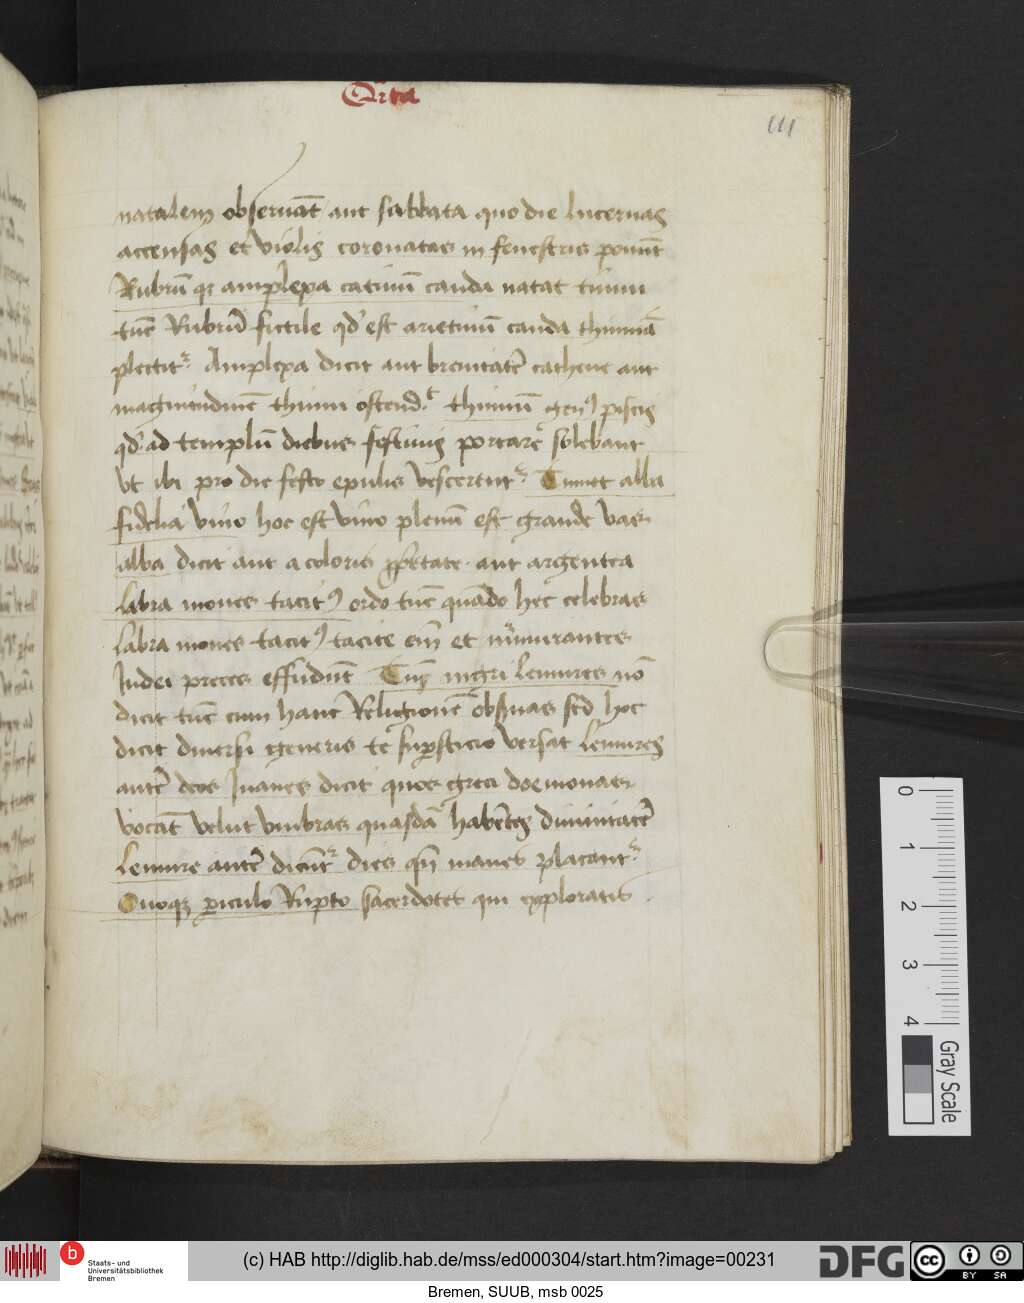 Qrta
111
natalem obseruāt aut sabbata quo die lucernas
accensas et violis coronatas in fenestris ponūt
Rubrū qz amplexa catinū cauda natat tinni
tūc Rubrū fictile qd' est arietinū cauda thinniā
plectit Amplexa dicit aut breuitatē cathene aut
magnitudinē thinni ostend. thinnū gen9 piscis
qd' ad templū diebus festiuis portare solebant
vt ibi pro die festo epulis vescerētur Tumet alba
fidelia vino hoc est vino plenū est grande vas
alba dicit aut a coloris aut argentea
labra moues tacit9 ordo tūc quādo hec celebras
labra moues tacit9 tacite eni et murmurantes
Iudei preces effūdūt Tūc nigri lemures nō
dicit tūc cum hanc Religionē obsruas sed hoc
dicit diuersi generis te supsticio versat lemures
autē deos manes dicit quos greci doemonas
vocāt velut vmbras quasdā habētes diuinitatē
lemure autē dicūt dies qn manes placant
Ouoqz piculo Rupto sacerdotes qui exploratis
0 1 2 3 4
Gray Scale
b Staats- und
Universitätsbibliothek
Bremen
(c) HAB http://diglib.hab.de/mss/ed000304/start.htm?image=00231
DFG
cc BY SA
Bremen, SUUB, msb 0025